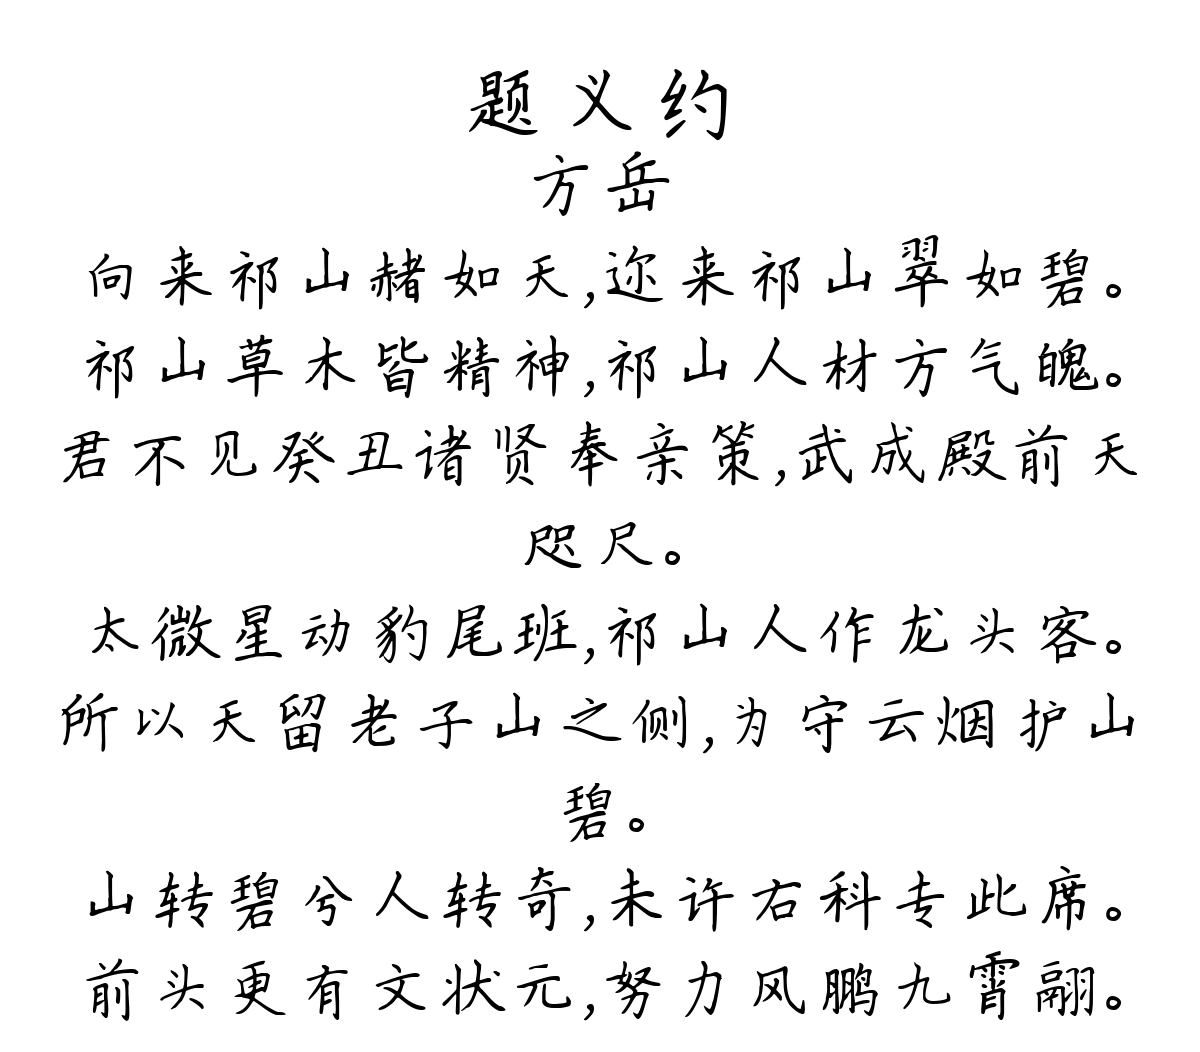 题义约
方岳
向来祁山赭如天,迩来祁山翠如碧。
祁山草木皆精神,祁山人材方气魄。
君不见癸丑诸贤奉亲策,武成殿前天
咫尺。
太微星动豹尾班,祁山人作龙头客。
所以天留老子山之侧,为守云烟护山
碧。
山转碧兮人转奇,未许右科专此席。
前头更有文状元,努力风鹏九霄翮。